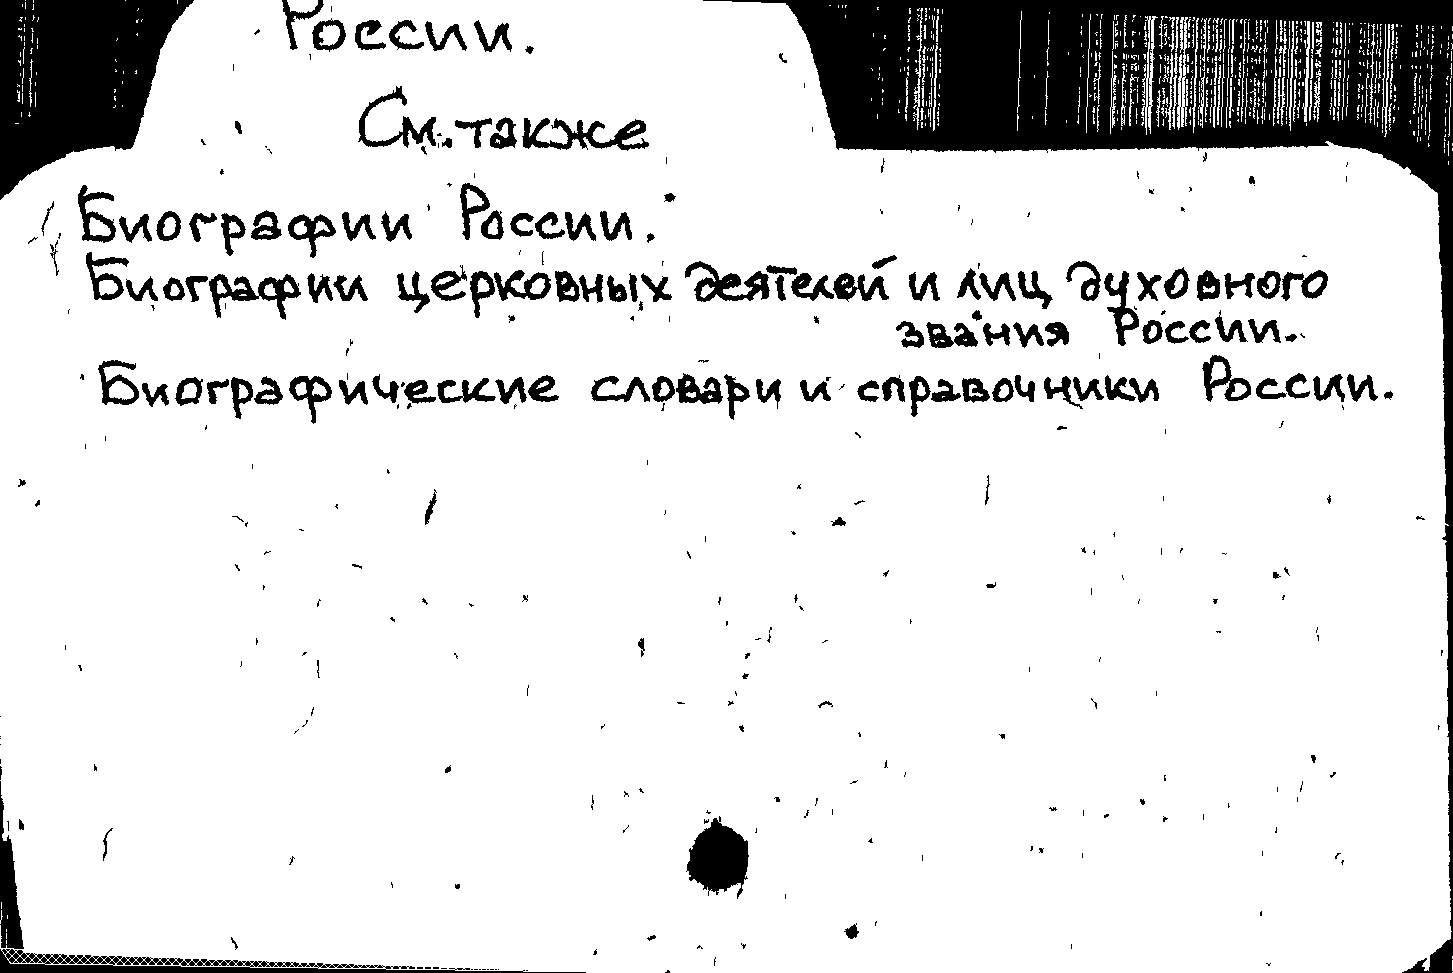 России.
См. также
Биографии России.
Биографии церковных деятелей и лиц духовного
звания России.
Биографические словари и справочники России.